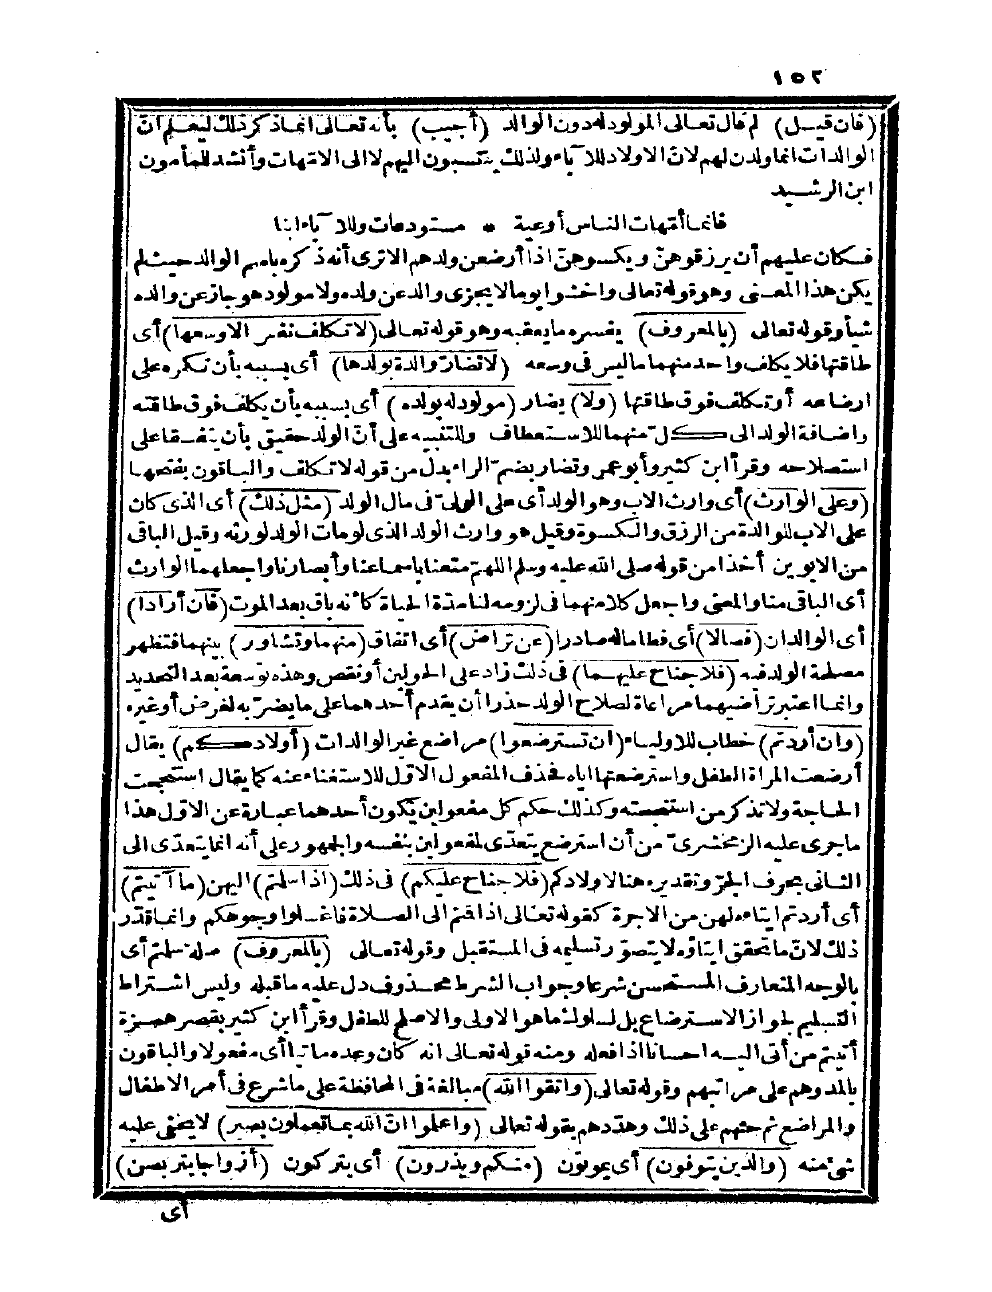 ١٥٢
(فان قيل) لم قال تعالى المولود له دون الوالد (أجيب) بأنه تعالى انما ذكر ذلك ليعلم أنّ
الوالدات انما ولدن لهم لانّ الاولاد للآباء ولذلك ينتسبون اليهم لا الى الامّهات وأنشد للمأمون
ابن الرشيد
فانما أمّهات الناس أوعية * مستودعات وللآباء أبنا
فكان عليهم أن يرزقوهنّ ويكسوهنّ اذا أرضعن ولدهم الا ترى أنه ذكره باسم الوالد حيث لم
يكن هذا المعنى وهو قوله تعالى واخشوا يوما لا يجزى والد عن ولده ولا مولود هو جاز عن والده
شيأ وقوله تعالى (بالمعروف) يفسره ما يعقبه وهو قوله تعالى (لا تكلف نفس الا وسعها) أى
طاقتها فلا يكلف واحد منهما ما ليس فى وسعه (لا تضارّ والدة بولدها) أى بسببه بأن تكره على
ارضاعه أو تكلف فوق طاقتها (ولا) يضار (مولود له بولده) أى بسببه بأن يكلف فوق طاقته
واضافة الولد الى كل منهما للاستعطاف والتنبيه على أنّ الولد حقيق بأن يتفقا على
استصلاحه وقرأ ابن كثير وأبو عمر وتضار بضم الراء بدل من قوله لا تكلف والباقون بفتحها
(وعلى الوارث) أى وارث الاب وهو الولد أى على الولىّ فى مال الولد (مثل ذلك) أى الذى كان
على الاب للوالدة من الرزق والكسوة وقيل هو وارث الولد الذى لو مات الولد لورثه وقيل الباقى
من الابوين أخذا من قوله صلى الله عليه وسلم اللهمّ متعنا باسماعنا وأبصارنا واجعلهما الوارث
أى الباقى منا والمعنى واجعل كلا منهما فى لزومه لنا مدة الحياة كأنه باق بعد الموت (فان أرادا)
أى الوالدان (فصالا) أى فطاما له صادرا (عن تراض) أى اتفاق (منهما وتشاور) بينهما فتظهر
مصلحة الولد فيه (فلا جناح عليهما) فى ذلك زاد على الحولين أو نقص وهذه توسعة بعد التحديد
وانما اعتبر تراضيهما مراعاة لصلاح الولد حذرا أن يقدم أحدهما على ما يضرّ به لغرض أو غيره
(وان أردتم) خطاب للاولياء (ان تسترضعوا) مراضع غير الوالدات (أولادكم) يقال
أرضعت المرأة الطفل واسترضعتها اياه فحذف المفعول الاول للاستغناء عنه كما يقال استنجحت
الحاجة ولا تذكر من استنجحته وكذلك حكم كل مفعولين يكون أحدهما عبارة عن الاول هذا
ما جرى عليه الزمخشرىّ من أن استرضع يتعدّى لمفعولين بنفسه والجمهور على أنه انما يتعدّى الى
الثانى بحرف الجرّ وتقديره هنا لاولادكم (فلا جناح عليكم) فى ذلك (اذا سلمتم) اليهن (ما آتيتم)
أى أردتم ايتاءه لهن من الاجرة كقوله تعالى اذا قمتم الى الصلاة فاغسلوا وجوهكم وانما قدّر
ذلك لانّ ما تحقق ايتاؤه لا يتصوّر تسليمه فى المستقبل وقوله تعالى (بالمعروف) صلة سلمتم أى
بالوجه المتعارف المستحسن شرعا وجواب الشرط محذوف دل عليه ما قبله وليس اشتراط
التسليم لجواز الاسترضاع بل لسلوك ما هو الاولى والاصلح للطفل وقرأ ابن كثير بقصر همزة
أتيتم من أتى اليه احسانا اذا فعله ومنه قوله تعالى انه كان وعده مأتيا أى مفعولا والباقون
بالمد وهم على مراتبهم وقوله تعالى (واتقوا الله) مبالغة فى المحافظة على ما شرع فى أمر الاطفال
والمراضع ثم حثهم على ذلك وهدّدهم بقوله تعالى (واعلموا انّ الله بما تعملون بصير) لا يخفى عليه
شئ منه (والذين يتوفون) أى يموتون (منكم ويذرون) أى يتركون (أزواجا يتربصن)
أى